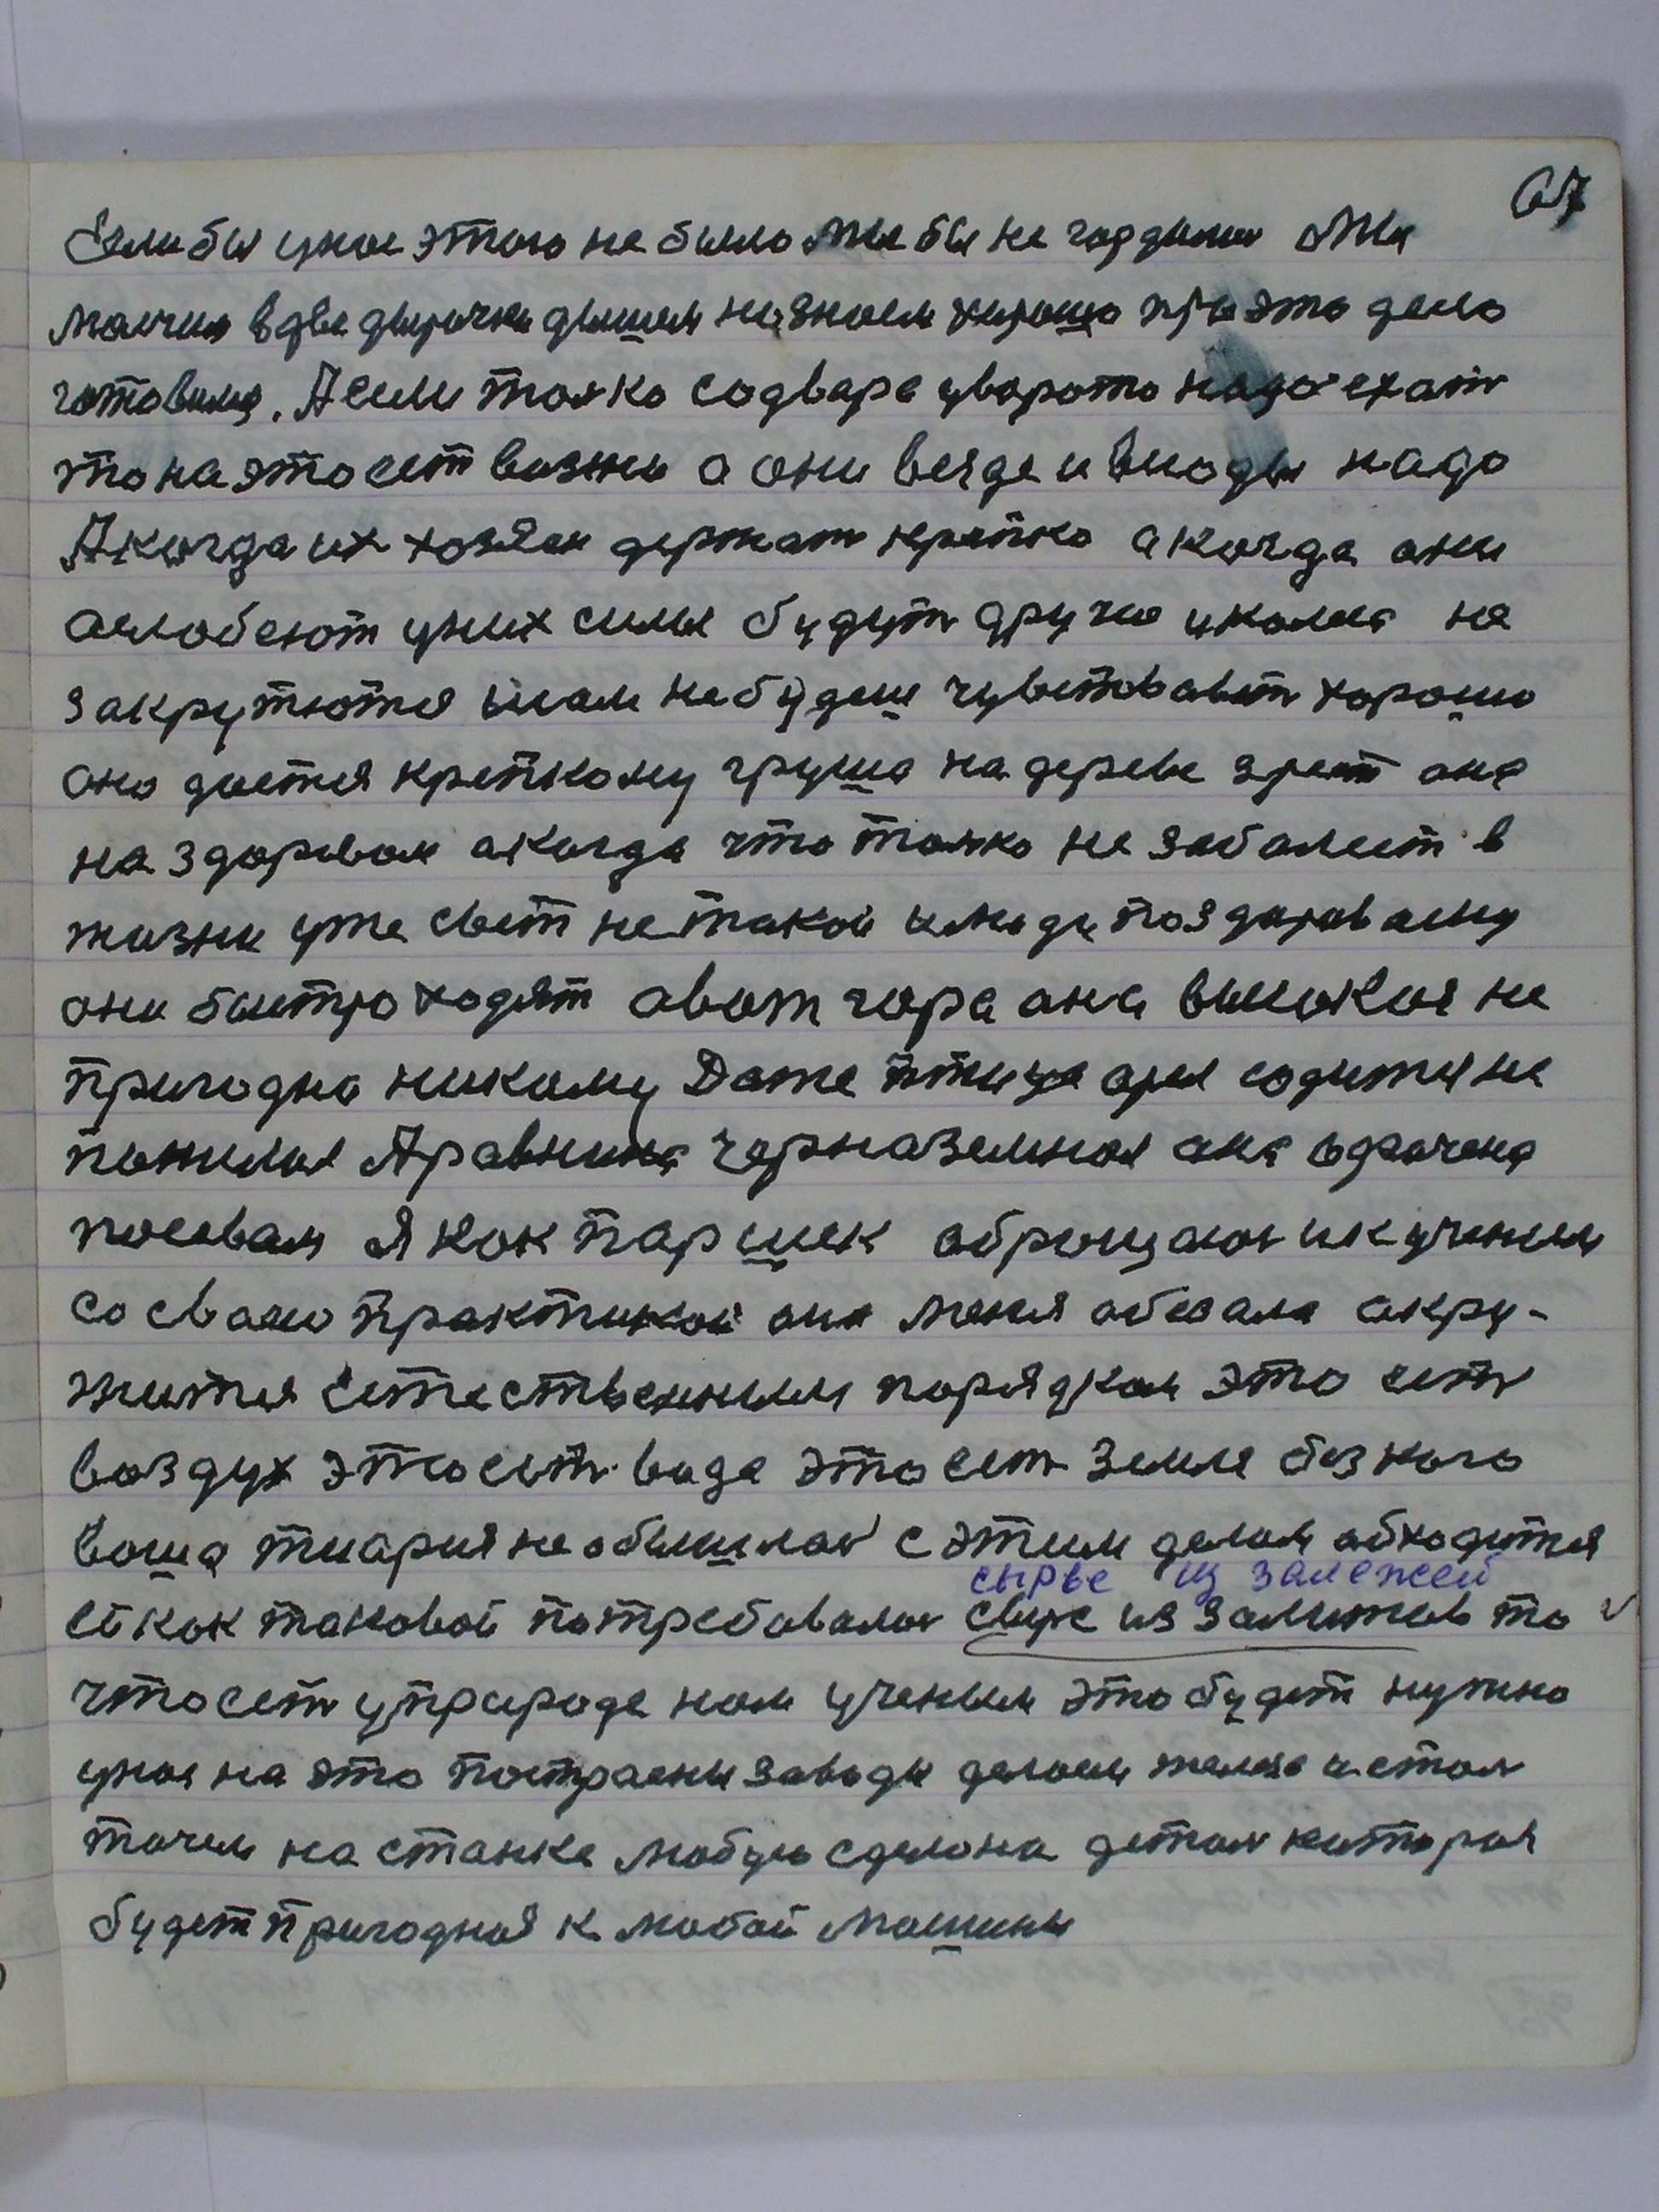 67
Если бы унас этого не было Мы бы не гордили Мы
молчим в две дырочки дышим незнаем хорошо про это дело
готовимя. А если толко содвара уворота надо ехать
то на это ест возжи а они везде и всюды надо
А когда их хозяен держат крепко а когда они
аслобеют уних силы будут други уколеса не
закрутютея ими не будеш чувствовать хорошо
оно дается крепкому груша на дереве зреет она
на здоровом а когда что толко не заболеет в
жизни уже свет не такой илюди поздоровому
они быстро ходят а вот гора она высокая не
пригодна никому Даже птица орел содится не
пожилая А равнина чорназемная она
посевам Я как паршек оброщаюсь ик ученым
со своею практикой она меня обезала окру-
жится естественным порядком это есть
воздух это есть вада это ест земля без кого
ваша тиария не обышлась с этим делом обходится
ей как таковой потребовалось свирє из залижев то
сырье из залежей
что есть уприроде нам ученым это будет нужно
унас на это построены заводы делоем железо и стал
точем на станке любую сделона деталь которая
будет пригодная к любой машины